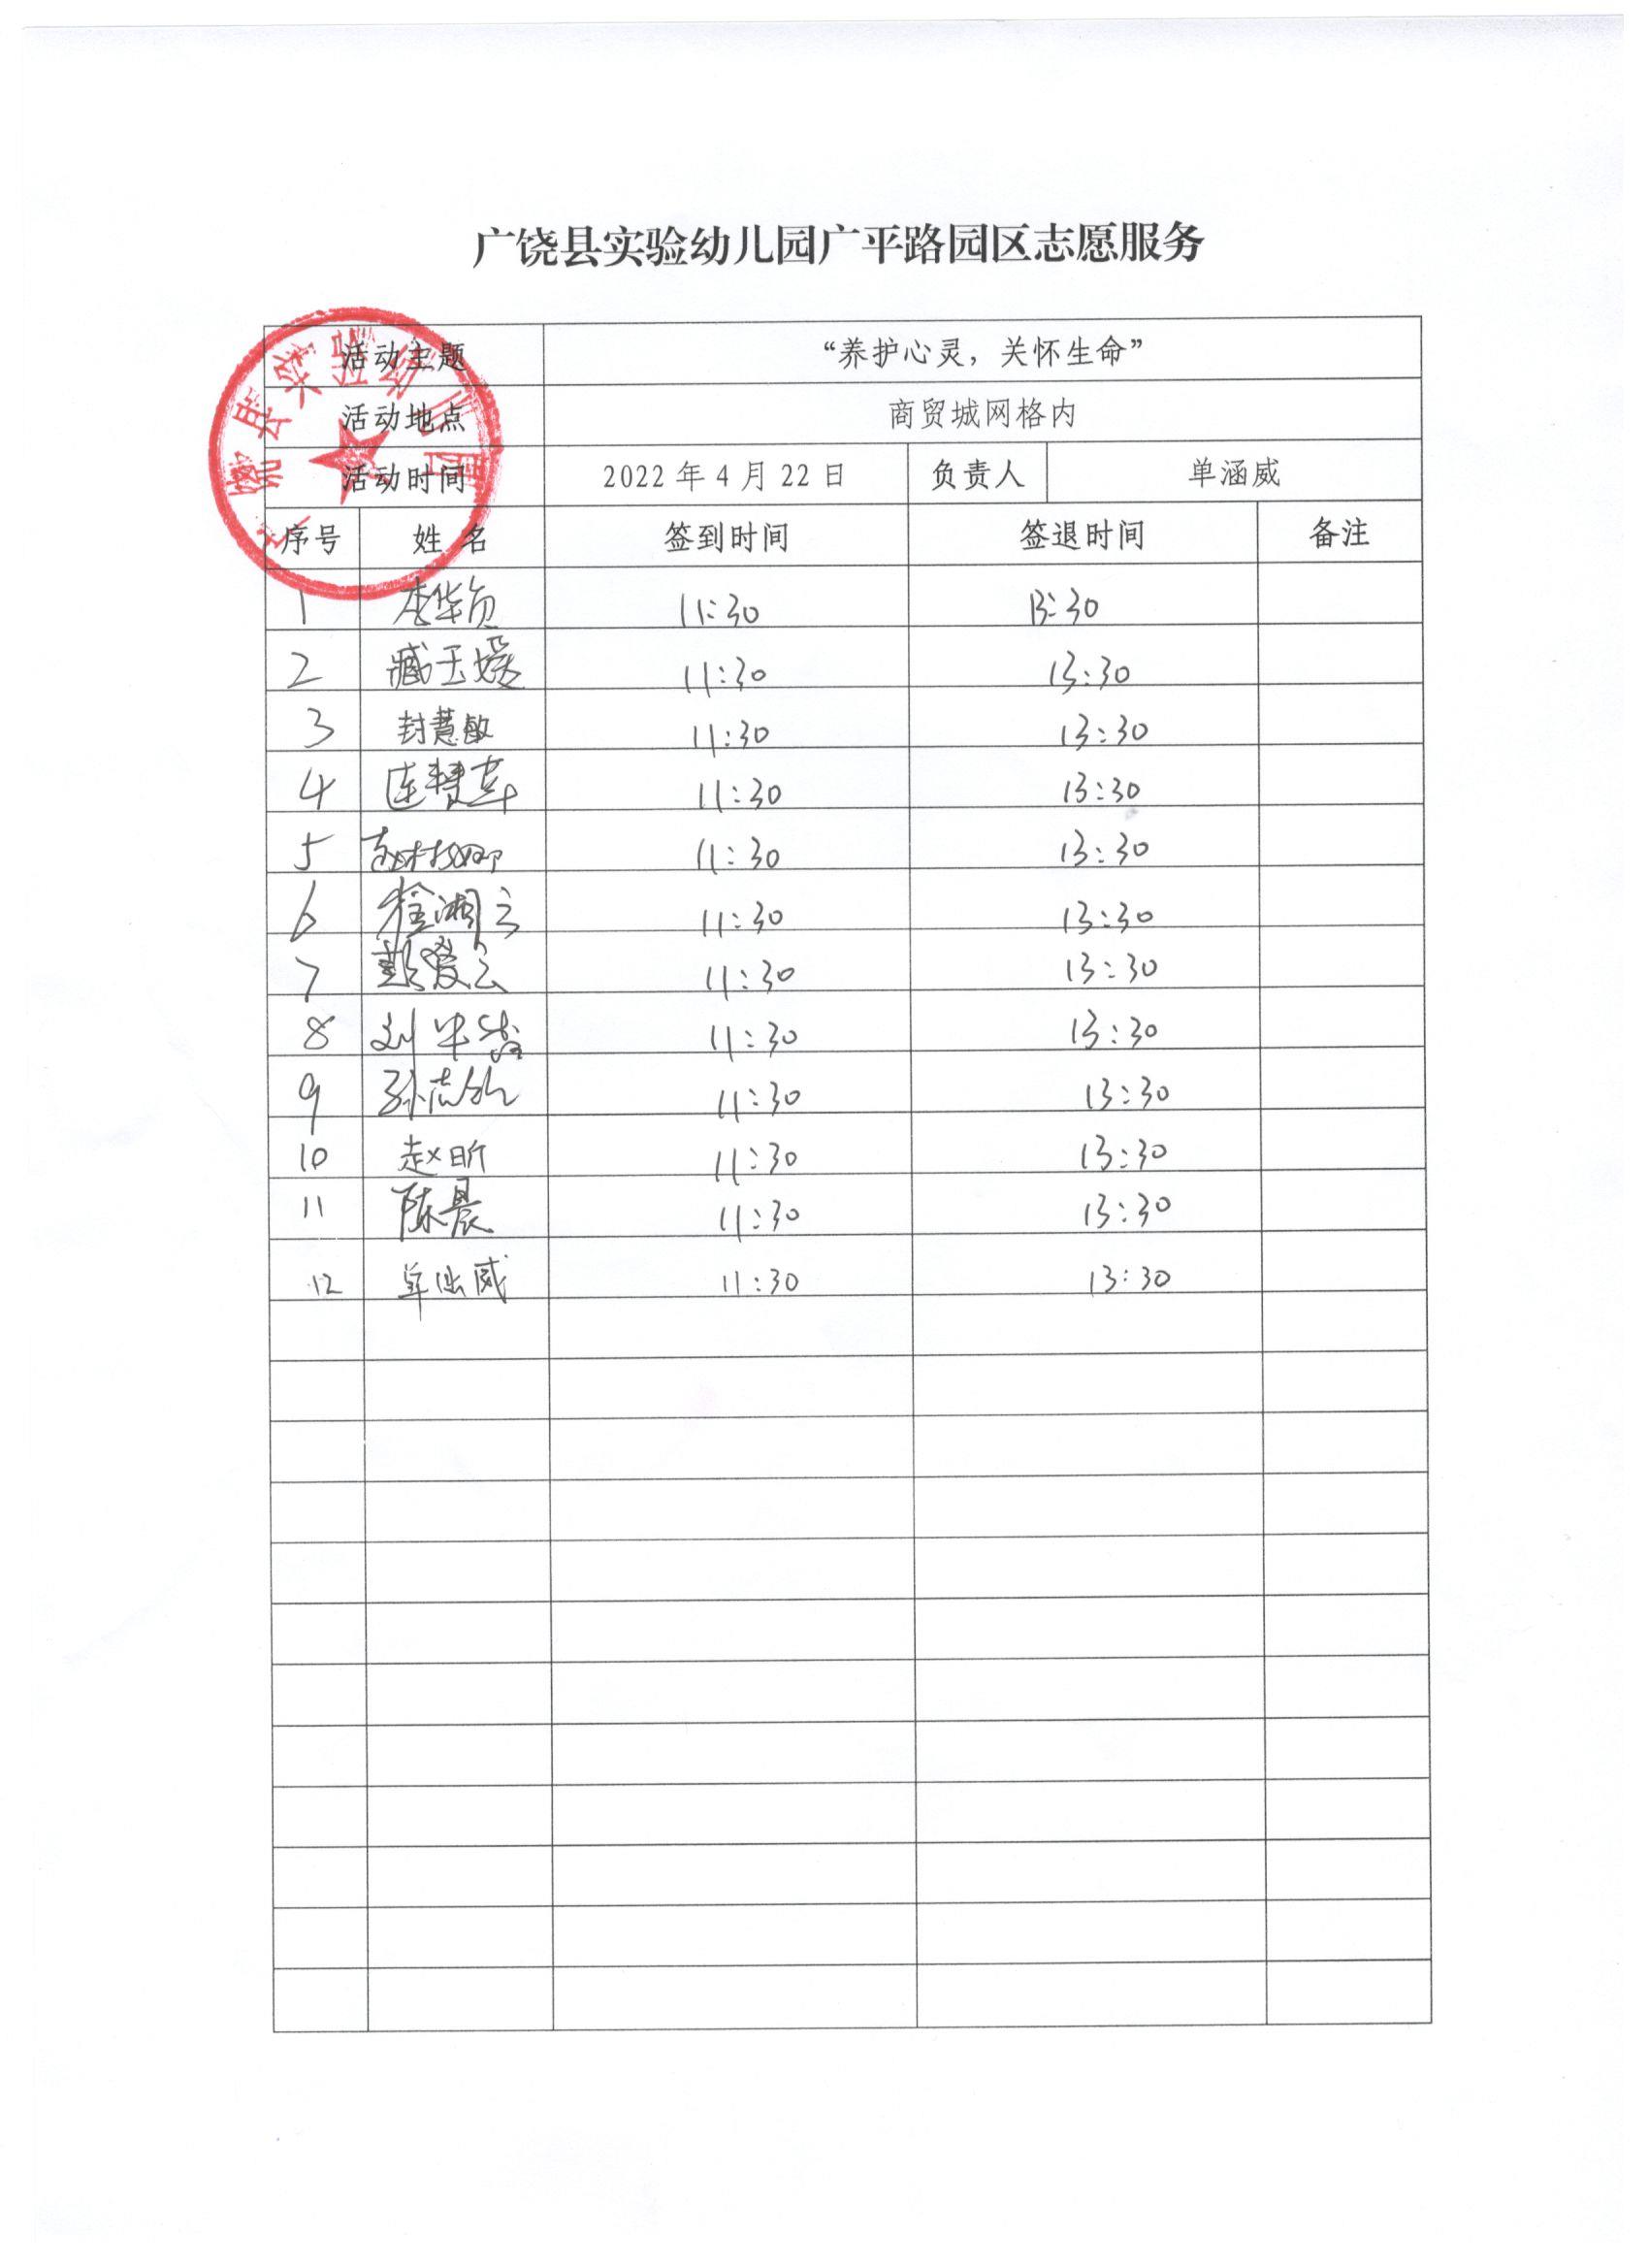 广饶县实验幼儿园广平路园区志愿服务
活动主题 “养护心灵，关怀生命”
活动地点 商贸城网格内
活动时间 2022年4月22日 负责人 单涵威
序号 姓 名 签到时间 签退时间 备注
1 11:30 13:30
2 臧玉媛 11:30 13:30
3 封慧敏 11:30 13:30
4 连慧莲 11:30 13:30
5 11:30 13:30
6 11:30 13:30
7 彭爱云 11:30 13:30
8 11:30 13:30
9 11:30 13:30
10 赵昕 11:30 13:30
11 陈晨 11:30 13:30
12 单涵威 11:30 13:30
饶县实验幼儿园